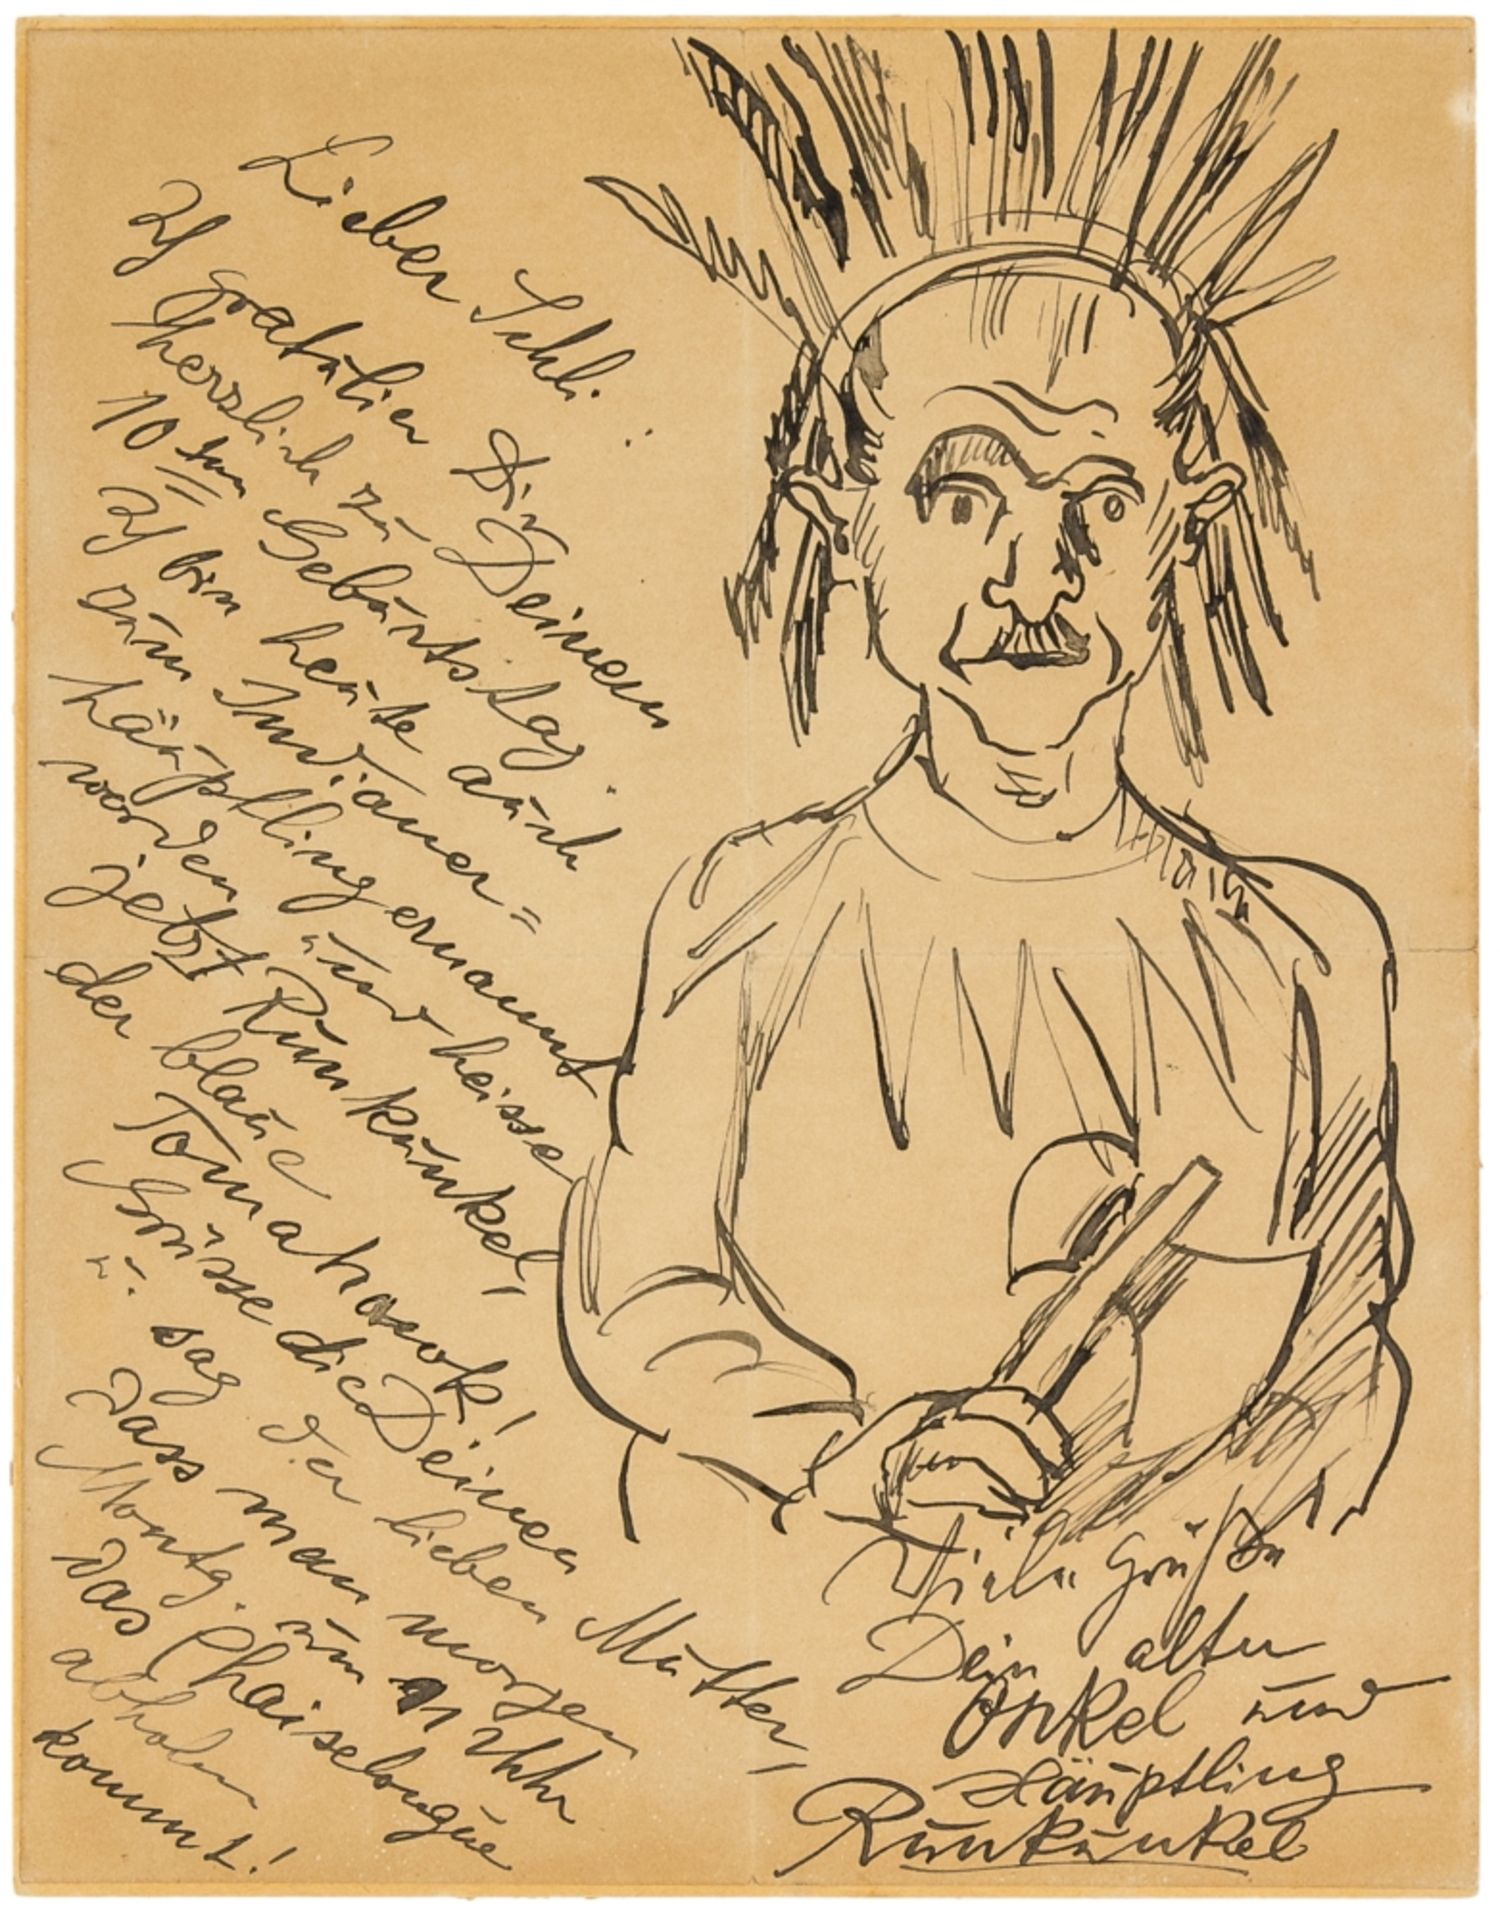 Lieber Schli:
Ich gratulier Dir
herzlich zu Deinem
10ten Geburtstag.
Ich bin heute auch
zum Indianer=
häuptling ernannt
worden und heisse
jetzt Runkunkel,
der blaue
Tomahawok!
Grüsse die Deinen
u. sag der lieben Mutter,
dass man morgen
Montg. um 11 Uhr
das Chaiselongue
abholen
kommt!
Viele Grüße
Dein alter
Onkel und
Häuptling
Runkunkel